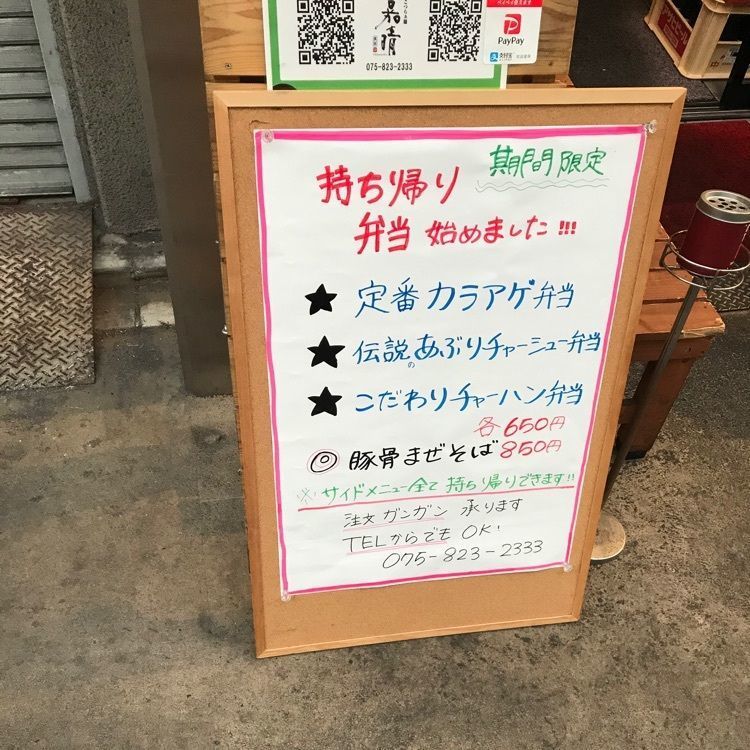 075-823-2333
PayPay
期間限定
持ち帰り
弁当 始めました!!!
★ 定番カラアゲ弁当
★ 伝説のあぶりチャーシュー弁当
★ こだわりチャーハン弁当
各650円
◎ 豚骨まぜそば 850円
※サイドメニュー全て持ち帰りできます!!
注文ガンガン承ります
TELからでもOK!
075-823-2333